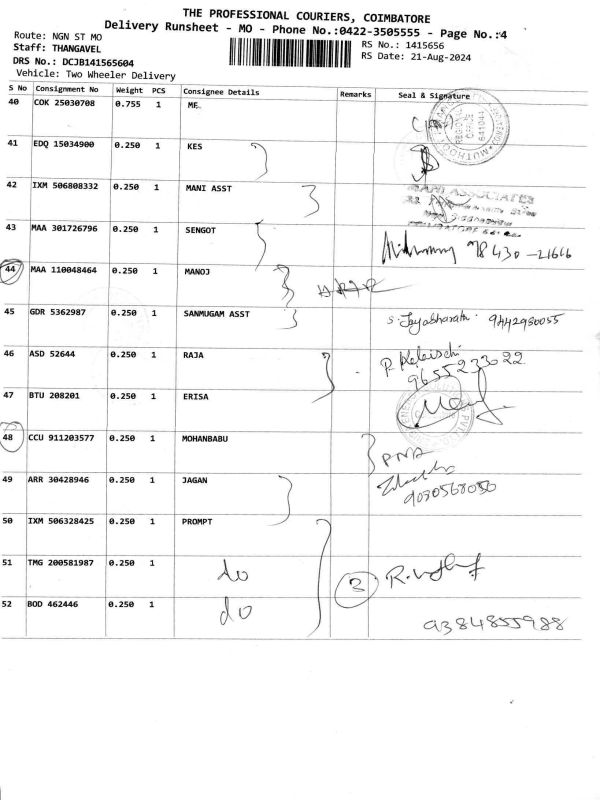 THE PROFESSIONAL COURIERS, COIMBATORE
Delivery Runsheet - MO - Phone No.:0422-3505555 - Page No.:4
Route: NGN ST MO
Staff: THANGAVEL
RS No.: 1415656
DRS No.: DCJB141565604
RS Date: 21-Aug-2024
Vehicle: Two Wheeler Delivery
S No Consignment No Weight PCS Consignee Details Remarks Seal & Signature
40 COK 25030708 0.755 1 ME
REGIONAL OFFICE 641044 MUTHOOT
41 EDQ 15034900 0.250 1 KES
42 IXM 506808332 0.250 1 MANI ASST
MANI ASSOCIATES
43 MAA 301726796 0.250 1 SENGOT
98430-21616
44 MAA 110048464 0.250 1 MANOJ
45 GDR 5362987 0.250 1 SANMUGAM ASST S. Jayabharathi 9442980055
46 ASD 52644 0.250 1 RAJA
9655233022
47 BTU 208201 0.250 1 ERISA
48 CCU 911203577 0.250 1 MOHANBABU
49 ARR 30428946 0.250 1 JAGAN
9030568050
50 IXM 506328425 0.250 1 PROMPT
51 TMG 200581987 0.250 1 do 3
52 BOD 462446 0.250 1 do 9384855988